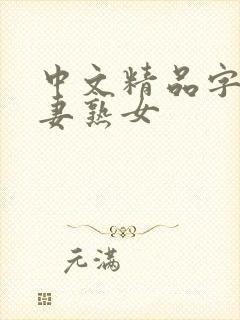 中文精品字
妻熟女
元满